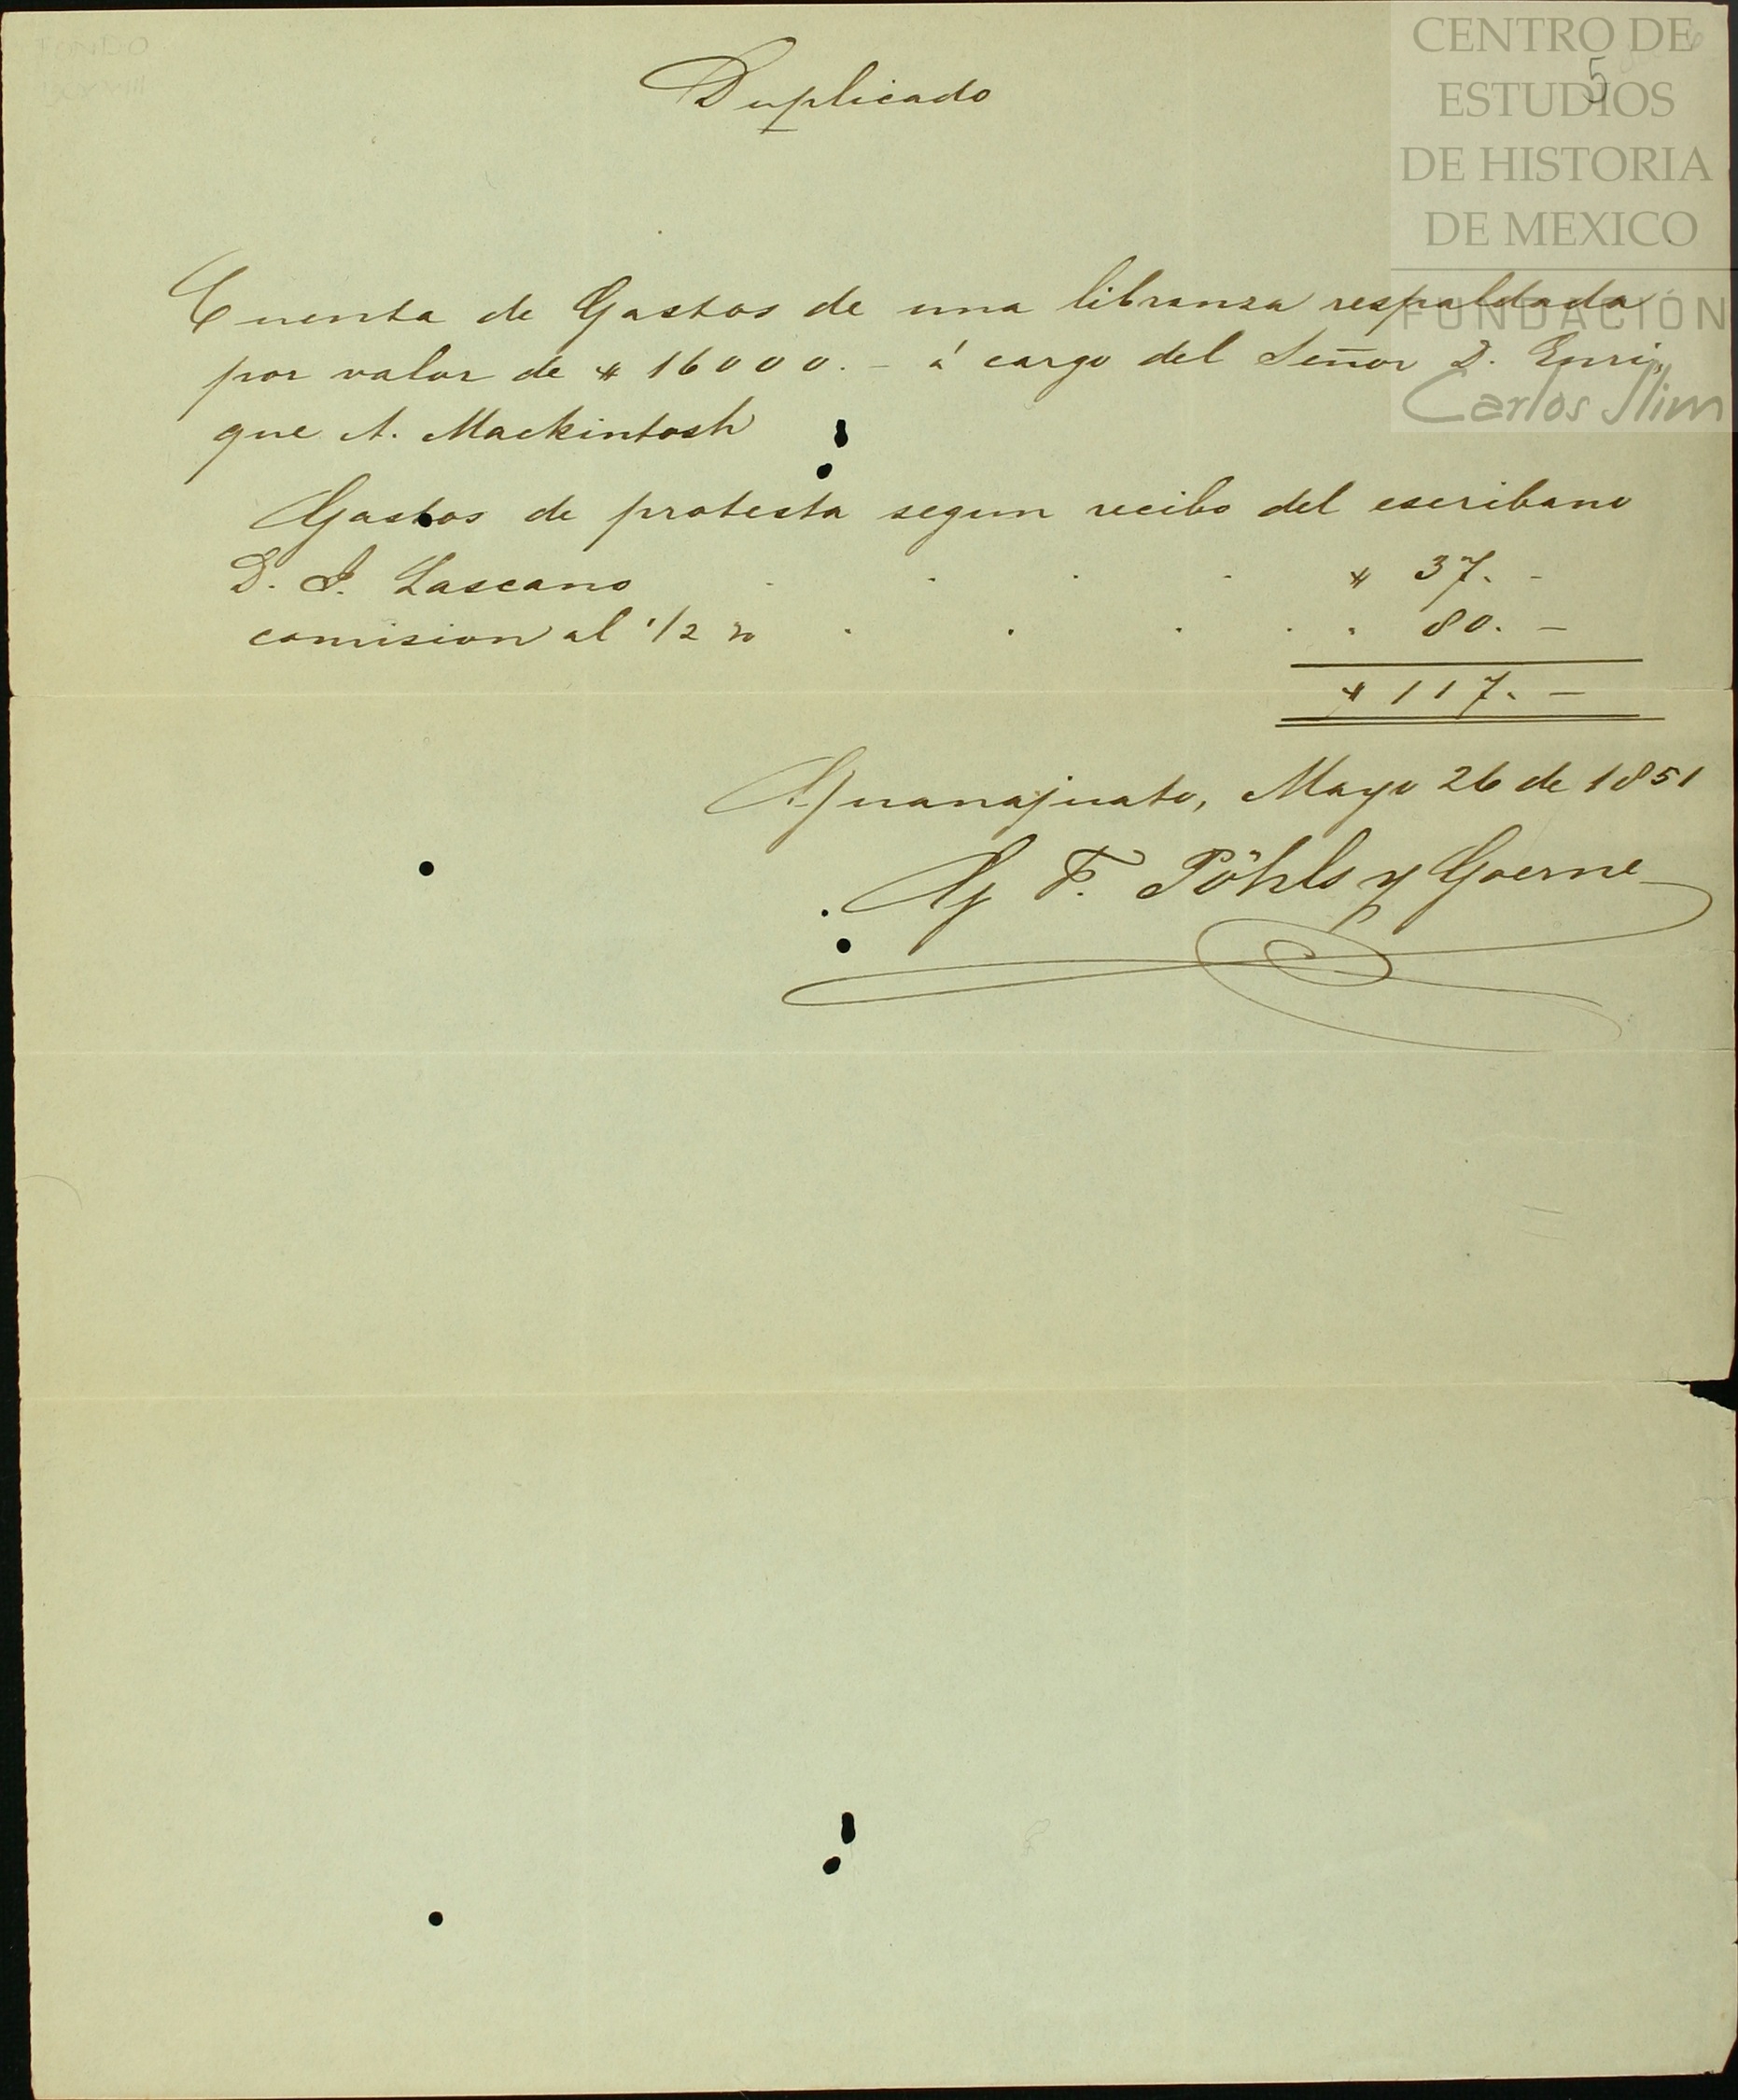 Duplicado
5
CENTRO DE
ESTUDIOS
DE HISTORIA
DE MEXICO
FUNDACIÓN
Carlos Slim
Cuenta de Gastos de una libranza respaldada
por valor de $ 16000. – á cargo del Señor D. Enri,,
que A. Mackintosh
Gastos de protesta segun recibo del escribano
D. I. Lascano . . . . $ 37. –
comision al 1/2 % . . . . . 80. –
$ 117. –
Guanajuato, Mayo 26 de 1851
F. Pöhls y Goerne